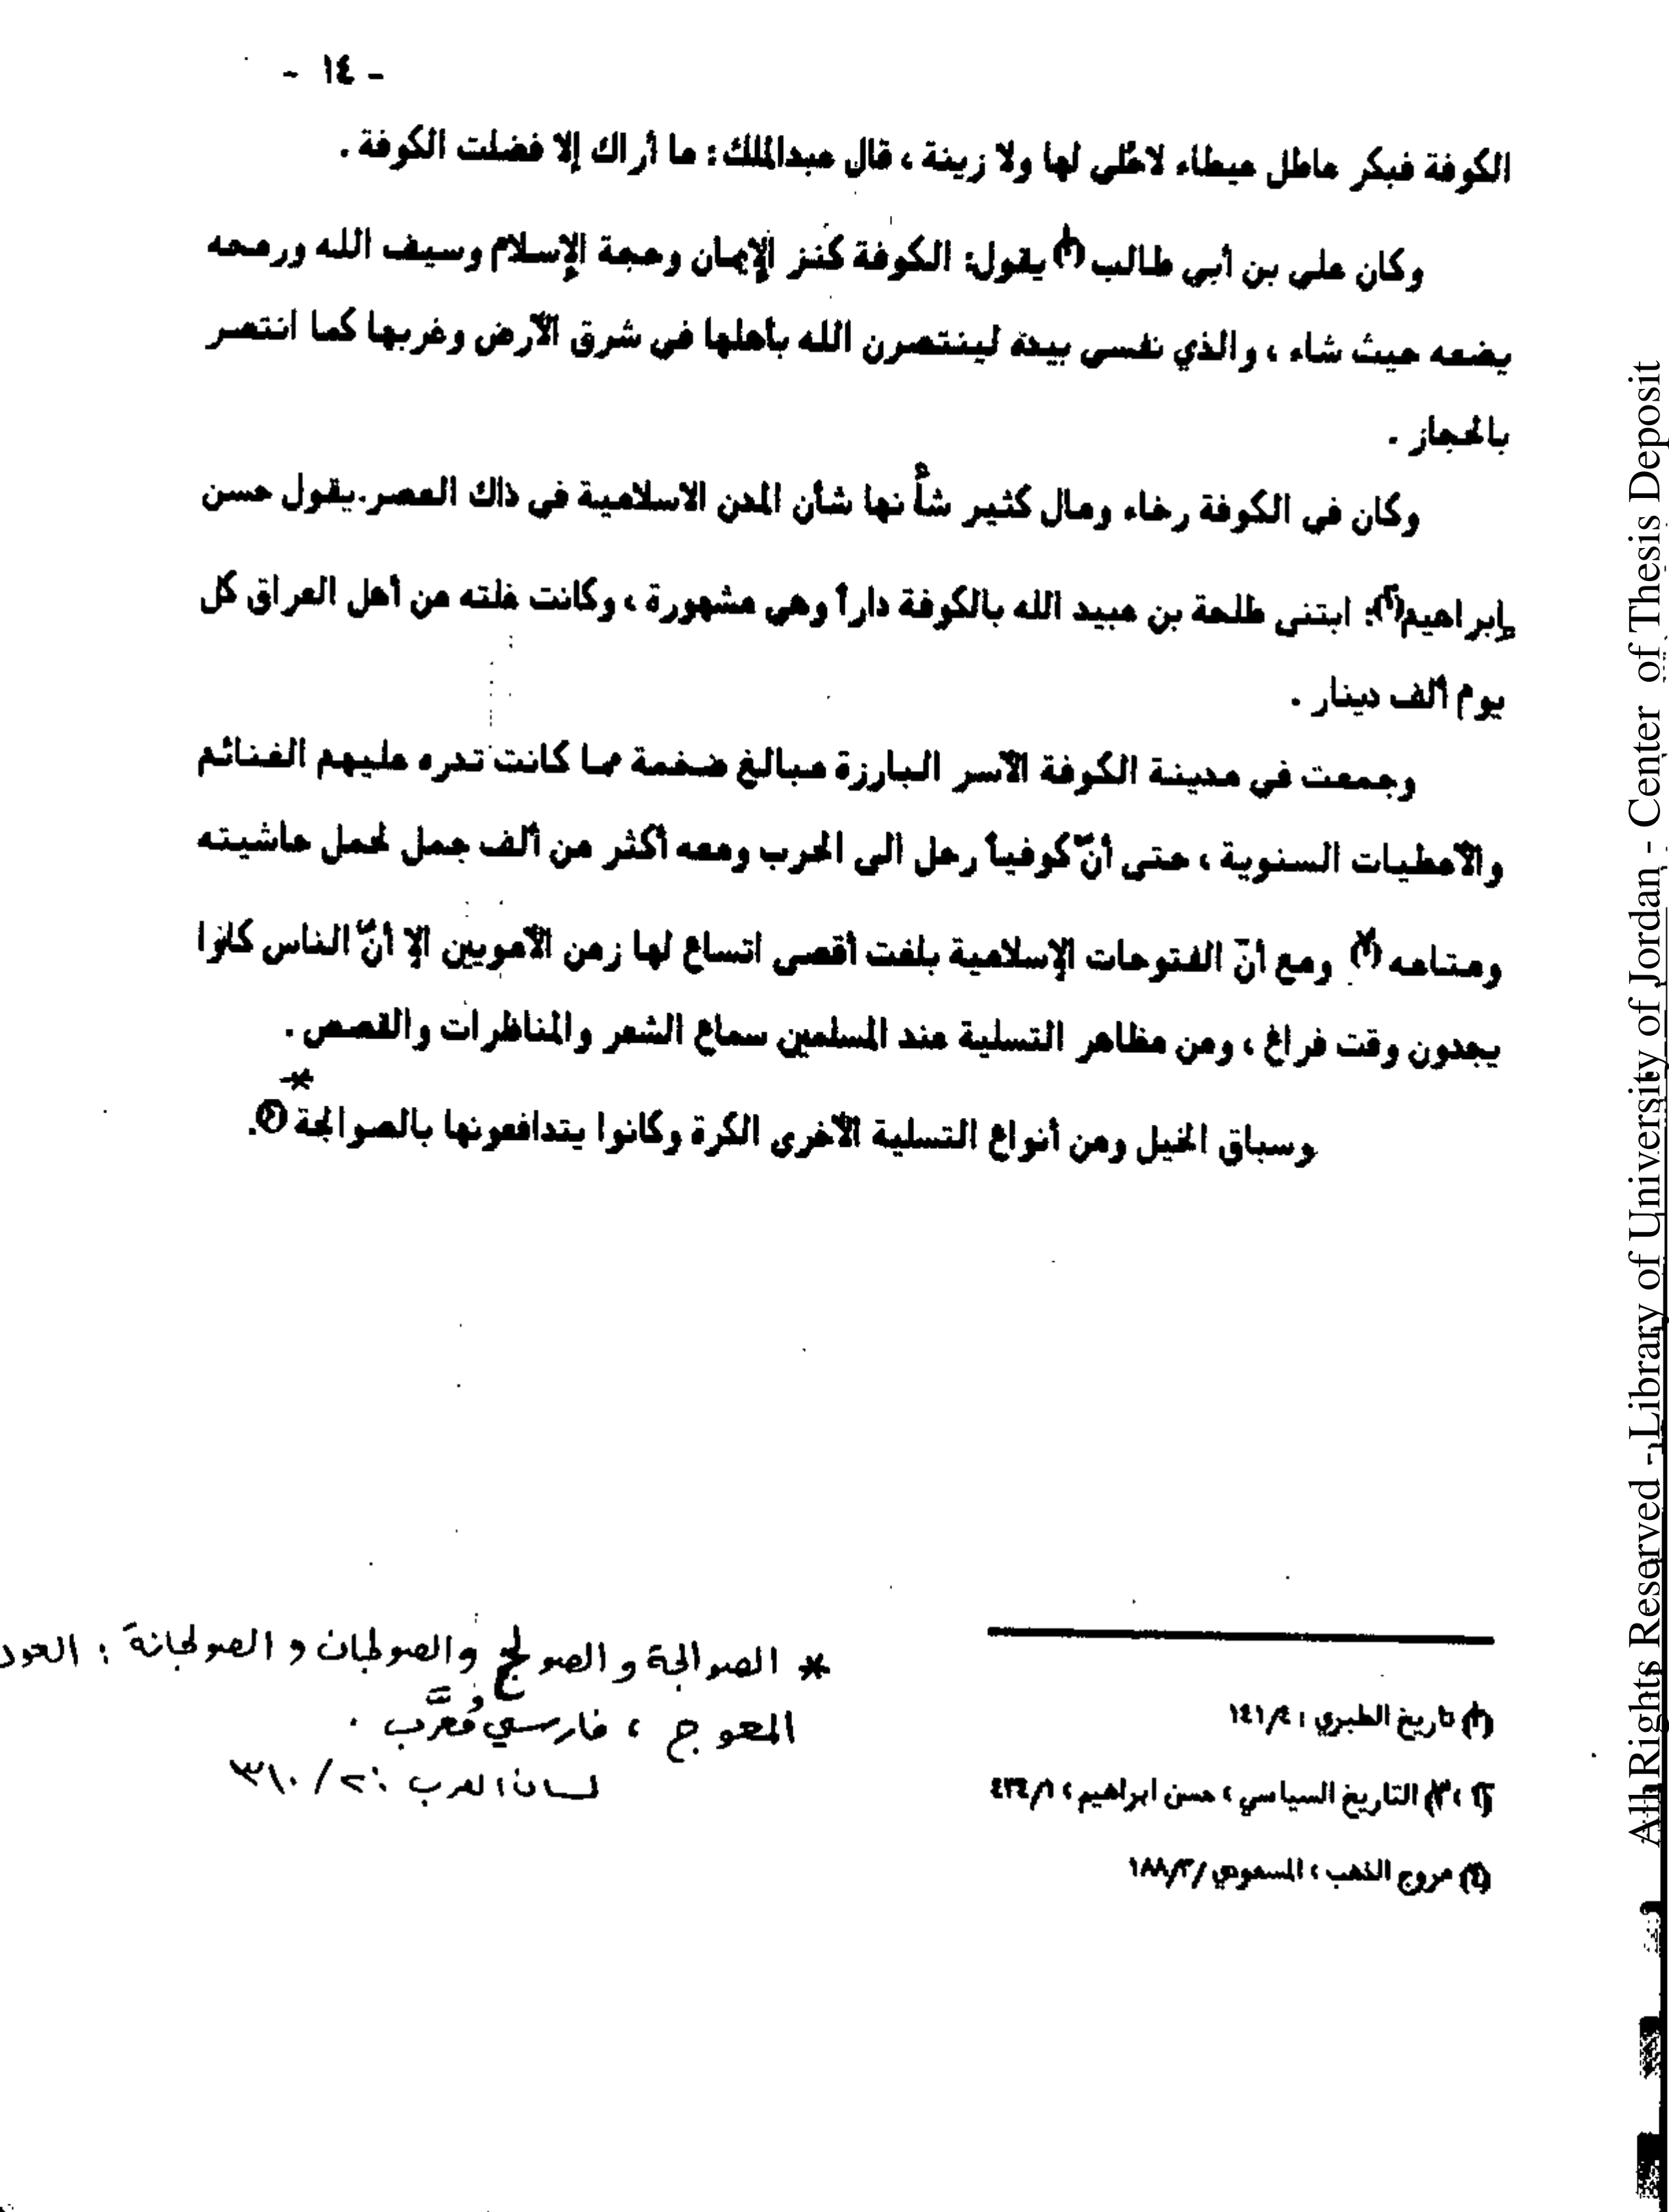 - ١٤ -
الكوفة فبكر عاطل عيطاء لاحُلي لها ولا زينة ، قال عبدالملك : ما أراك إلا فضلت الكوفة .
وكان علي بن أبي طالب (١) يقول: الكوفة كنز الإيمان وحجة الإسلام وسيف الله ورمحه
يضعه حيث شاء ، والذي نفسي بيده لينتصرن الله بأهلها في شرق الأرض وغربها كما انتصر
بالحجاز .
وكان في الكوفة رخاء ومال كثير شأنها شأن المدن الاسلامية في ذاك العصر.يقول حسن
إبراهيم(٢): ابتنى طلحة بن عبيد الله بالكوفة داراً وهي مشهورة ، وكانت غلته من أهل العراق كل
يوم ألف دينار .
وجمعت في مدينة الكوفة الأسر البارزة مبالغ ضخمة مما كانت تدره عليهم الغنائم
والأعطيات السنوية ، حتى أنّ كوفياً رحل الى الحرب ومعه أكثر من ألف جمل لحمل حاشيته
ومتاعه (٣) ومع أنّ الفتوحات الإسلامية بلغت أقصى اتساع لها زمن الأمويين الإ أنّ الناس كانوا
يجدون وقت فراغ ، ومن مظاهر التسلية عند المسلمين سماع الشعر والمناظرات والقصص .
وسباق الخيل ومن أنواع التسلية الأخرى الكرة وكانوا يتدافعونها بالصوالجة* (٤).
(١) تاريخ الطبري : ١٤١/٤
(٢ ، ٣) التاريخ السياسي ، حسن ابراهيم ، ٤٣٤/١
(٤) مروج الذهب ، المسعودي /١٨٨/٣
* الصوالجة و الصولج والصولجان و الصولجانة : العود
المعوج ، فارسي مُعَرَّب .
لسان العرب : ٢ / ٣١٠
All Rights Reserved - Library of University of Jordan - Center of Thesis Deposit